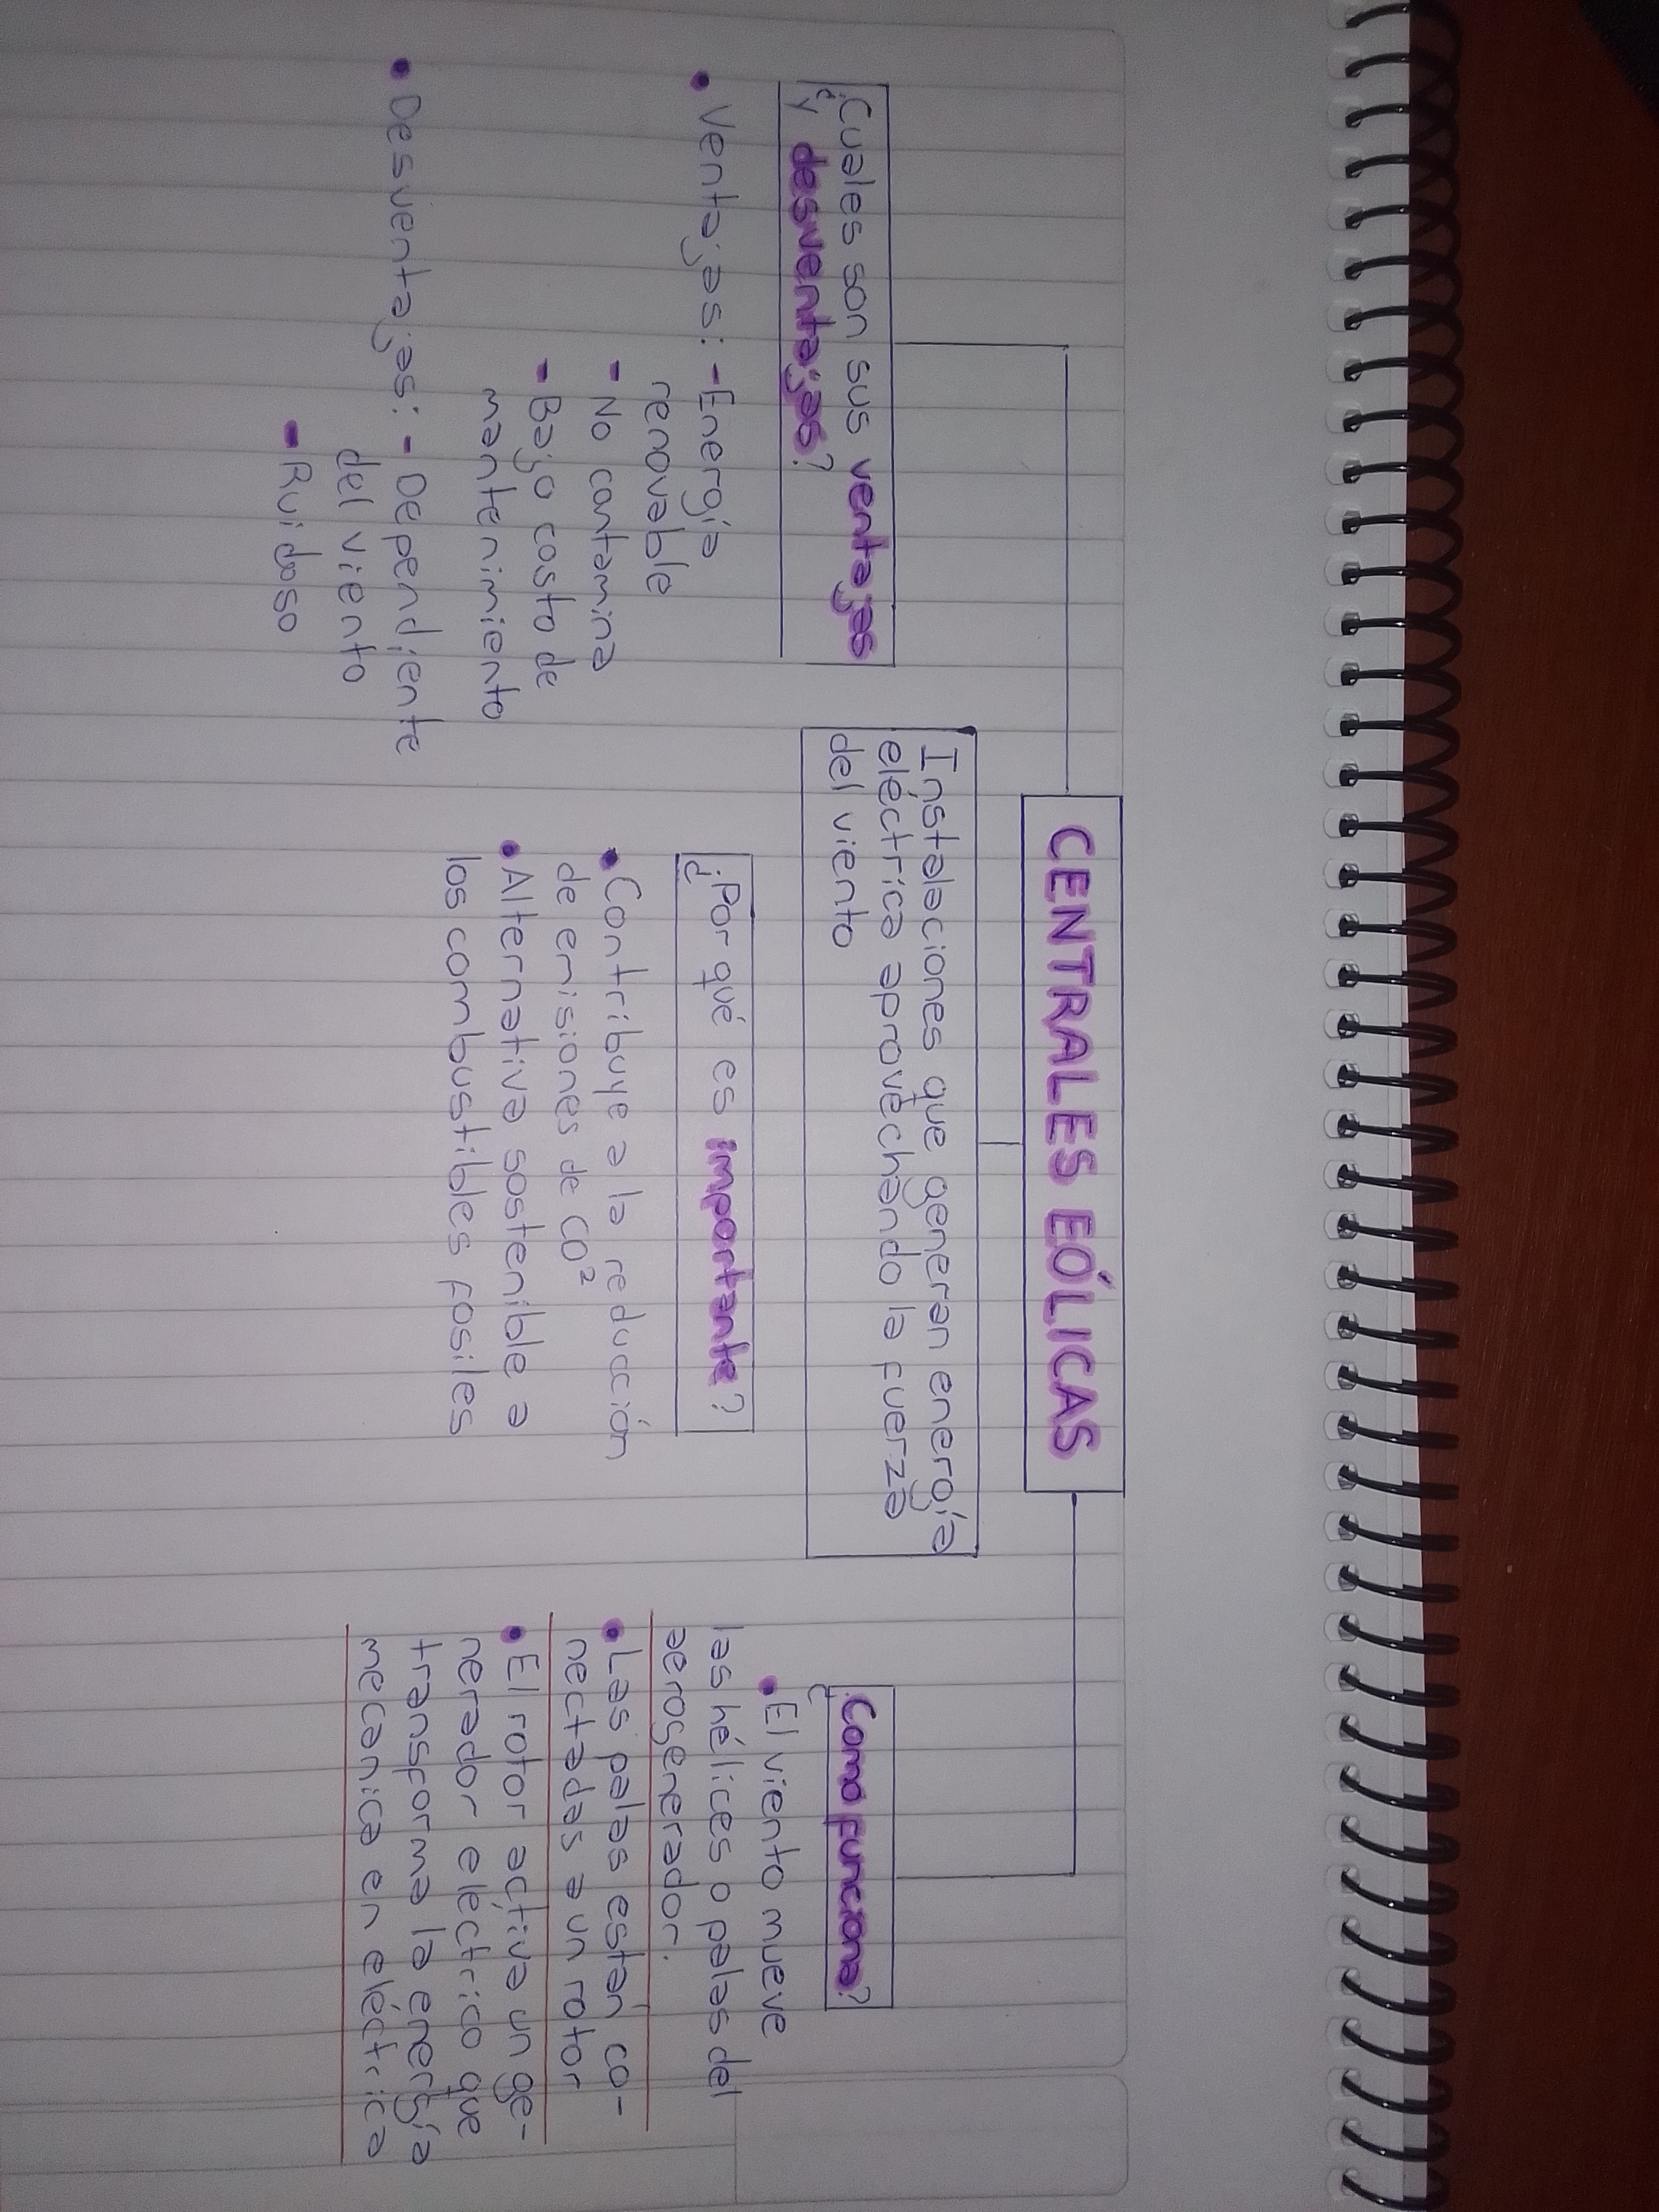 CENTRALES EÓLICAS
Instalaciones que generan energía
eléctrica aprovechando la fuerza
del viento
¿Cuales son sus ventajas
y desventajas?
• Ventajas: - Energía
renovable
- No contamina
- Bajo costo de
mantenimiento
• Desventajas: - Dependiente
del viento
- Ruidoso
¿Por qué es importante?
• Contribuye a la reducción
de emisiones de CO²
• Alternativa sostenible a
los combustibles fosiles
¿Como funciona?
• El viento mueve
las hélices o palas del
aerogenerador.
• Las palas están co-
nectadas a un rotor
• El rotor activa un ge-
nerador electrico que
transforma la energía
mecanica en eléctrica